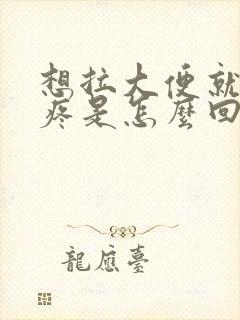 想拉大便就
疼是怎麼回
龍應臺